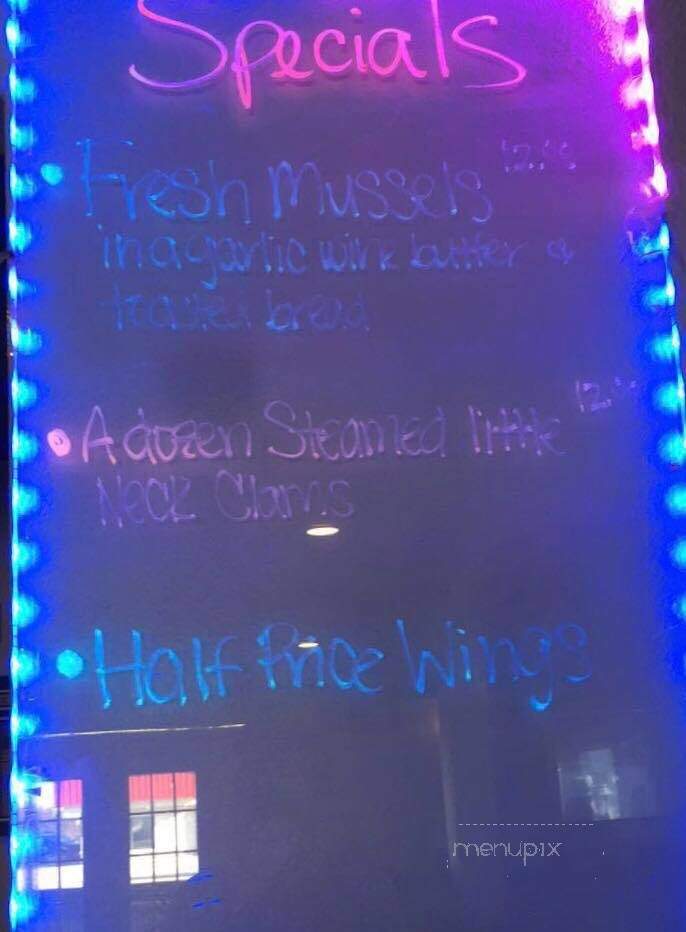 Specials
• Fresh Mussels
in a garlic wine butter &
toasted bread
• A dozen Steamed little
Neck Clams
• Half Price Wings
menupix